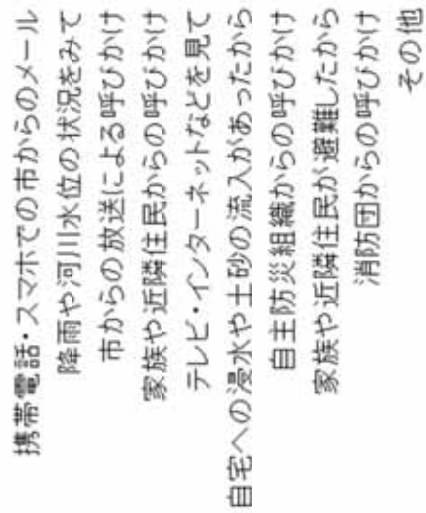 携帯電話・スマホでの市からのメール
降雨や河川水位の状況をみて
市からの放送による呼びかけ
家族や近隣住民からの呼びかけ
テレビ・インターネットなどを見て
自宅への浸水や土砂の流入があったから
自主防災組織からの呼びかけ
家族や近隣住民が避難したから
消防団からの呼びかけ
その他